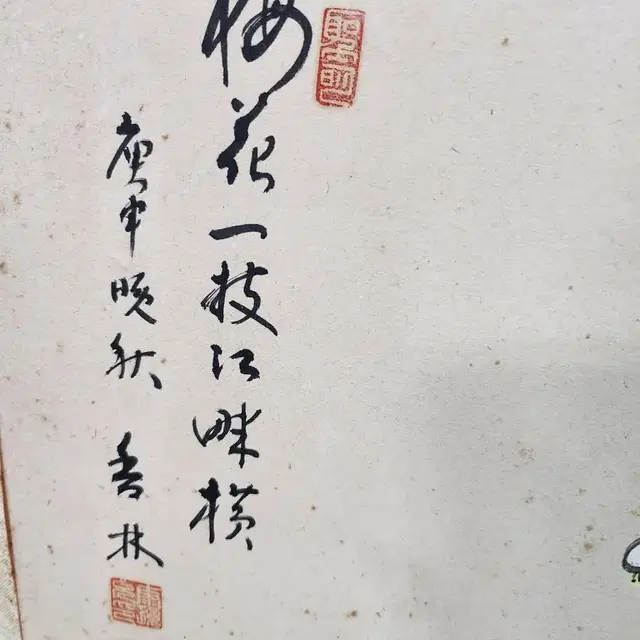 梅花一枝江畔橫
庚申晚秋 香林